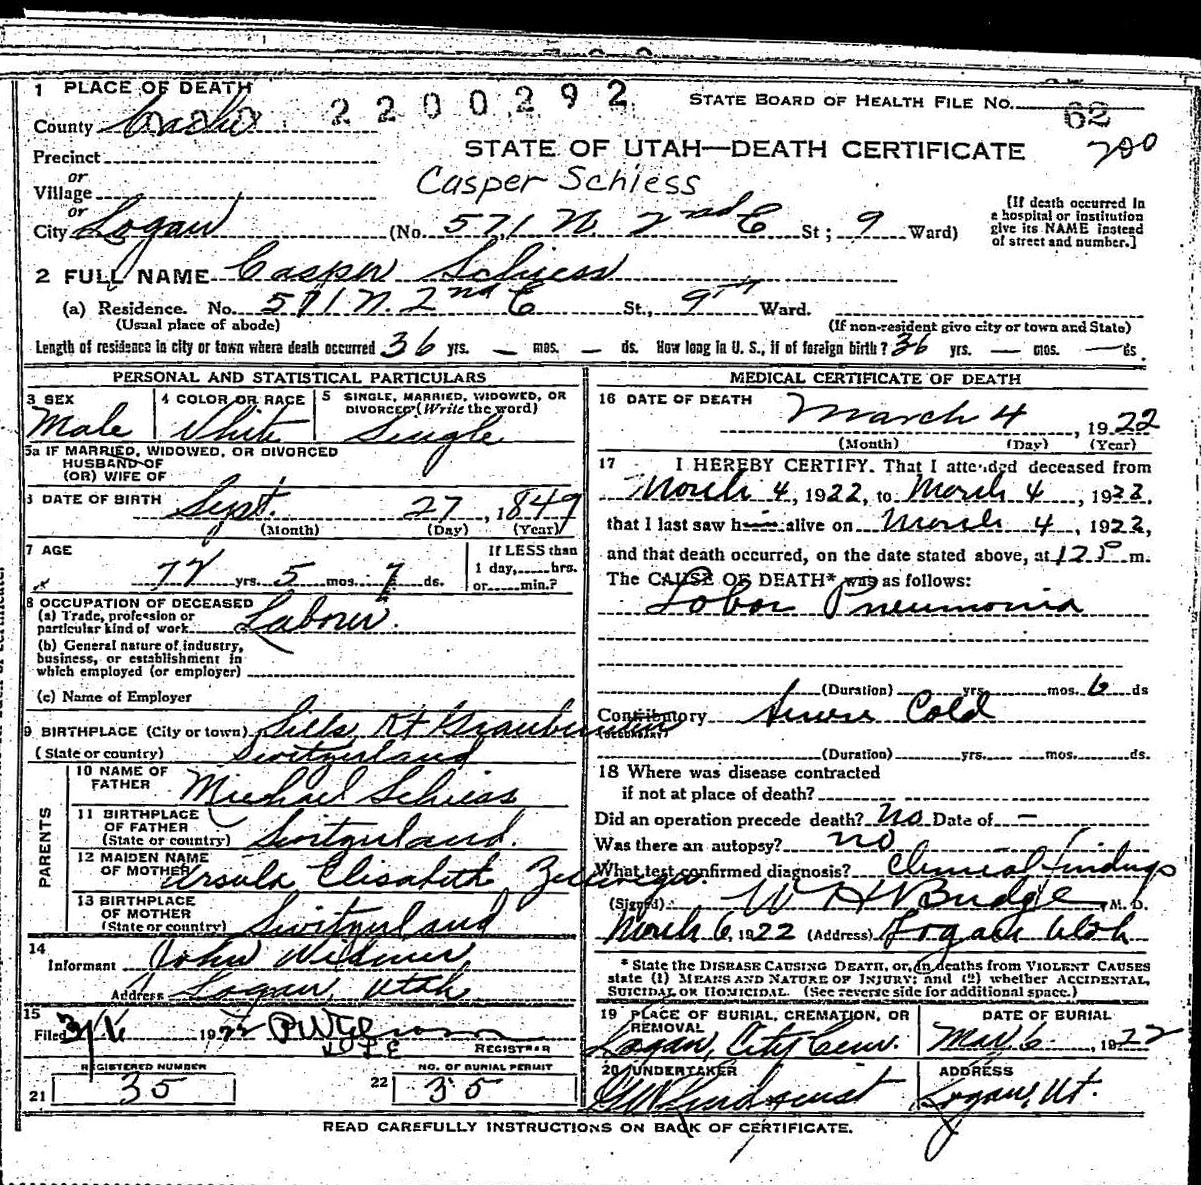 1 PLACE OF DEATH
2200292
STATE BOARD OF HEALTH FILE NO. 62
County Cache
STATE OF UTAH—DEATH CERTIFICATE
700
Precinct
or
Village
Casper Schiess
or
City Logan (No. 571 N. 2nd E St; 9 Ward)
[If death occurred in
a hospital or institution
give its NAME instead
of street and number.]
2 FULL NAME Casper Schiess
(a) Residence. No. 571 N. 2nd E St., 9th Ward.
(Usual place of abode) (If non-resident give city or town and State)
Length of residence in city or town where death occurred 36 yrs. — mos. — ds. How long in U. S., if of foreign birth? 36 yrs. — mos. — ds.
PERSONAL AND STATISTICAL PARTICULARS
3 SEX Male
4 COLOR OR RACE White
5 SINGLE, MARRIED, WIDOWED, OR
DIVORCED (Write the word)
Single
5a IF MARRIED, WIDOWED, OR DIVORCED
HUSBAND OF
(OR) WIFE OF
6 DATE OF BIRTH Sept. 27, 1849
(Month) (Day) (Year)
7 AGE
72 yrs. 5 mos. 7 ds.
If LESS than
1 day, hrs.
or min.?
8 OCCUPATION OF DECEASED
(a) Trade, profession or
particular kind of work Laborer.
(b) General nature of industry,
business, or establishment in
which employed (or employer)
(c) Name of Employer
9 BIRTHPLACE (City or town)
(State or country) Switzerland
PARENTS
10 NAME OF
FATHER Michael Schiess
11 BIRTHPLACE
OF FATHER
(State or country) Switzerland.
12 MAIDEN NAME
OF MOTHER Ursula Elisabeth
13 BIRTHPLACE
OF MOTHER
(State or country) Switzerland
14
Informant John
Address Logan, Utah
15
Filed 3/6 1922
REGISTRAR
REGISTERED NUMBER
21 35
NO. OF BURIAL PERMIT
22 35
MEDICAL CERTIFICATE OF DEATH
16 DATE OF DEATH March 4, 1922
(Month) (Day) (Year)
17 I HEREBY CERTIFY. That I attended deceased from
March 4, 1922, to March 4, 1922.
that I last saw him alive on March 4, 1922,
and that death occurred, on the date stated above, at 12 5 P m.
The CAUSE OF DEATH* was as follows:
Lobar Pneumonia
(Duration) yrs. mos. 6 ds
Contributory Severe Cold
(Duration) yrs. mos. ds.
18 Where was disease contracted
if not at place of death?
Did an operation precede death? No Date of —
Was there an autopsy? no
What test confirmed diagnosis? Clinical findings
(Signed) W H Budge M. D.
March 6, 1922 (Address) Logan Utah
* State the DISEASE CAUSING DEATH, or, in deaths from VIOLENT CAUSES
state (1) MEANS AND NATURE OF INJURY; and (2) whether ACCIDENTAL,
SUICIDAL OR HOMICIDAL. (See reverse side for additional space.)
19 PLACE OF BURIAL, CREMATION, OR
REMOVAL
Logan, City Cem.
DATE OF BURIAL
Mar. 6, 1922
20 UNDERTAKER
G W Lindquist
ADDRESS
Logan, Ut.
READ CAREFULLY INSTRUCTIONS ON BACK OF CERTIFICATE.